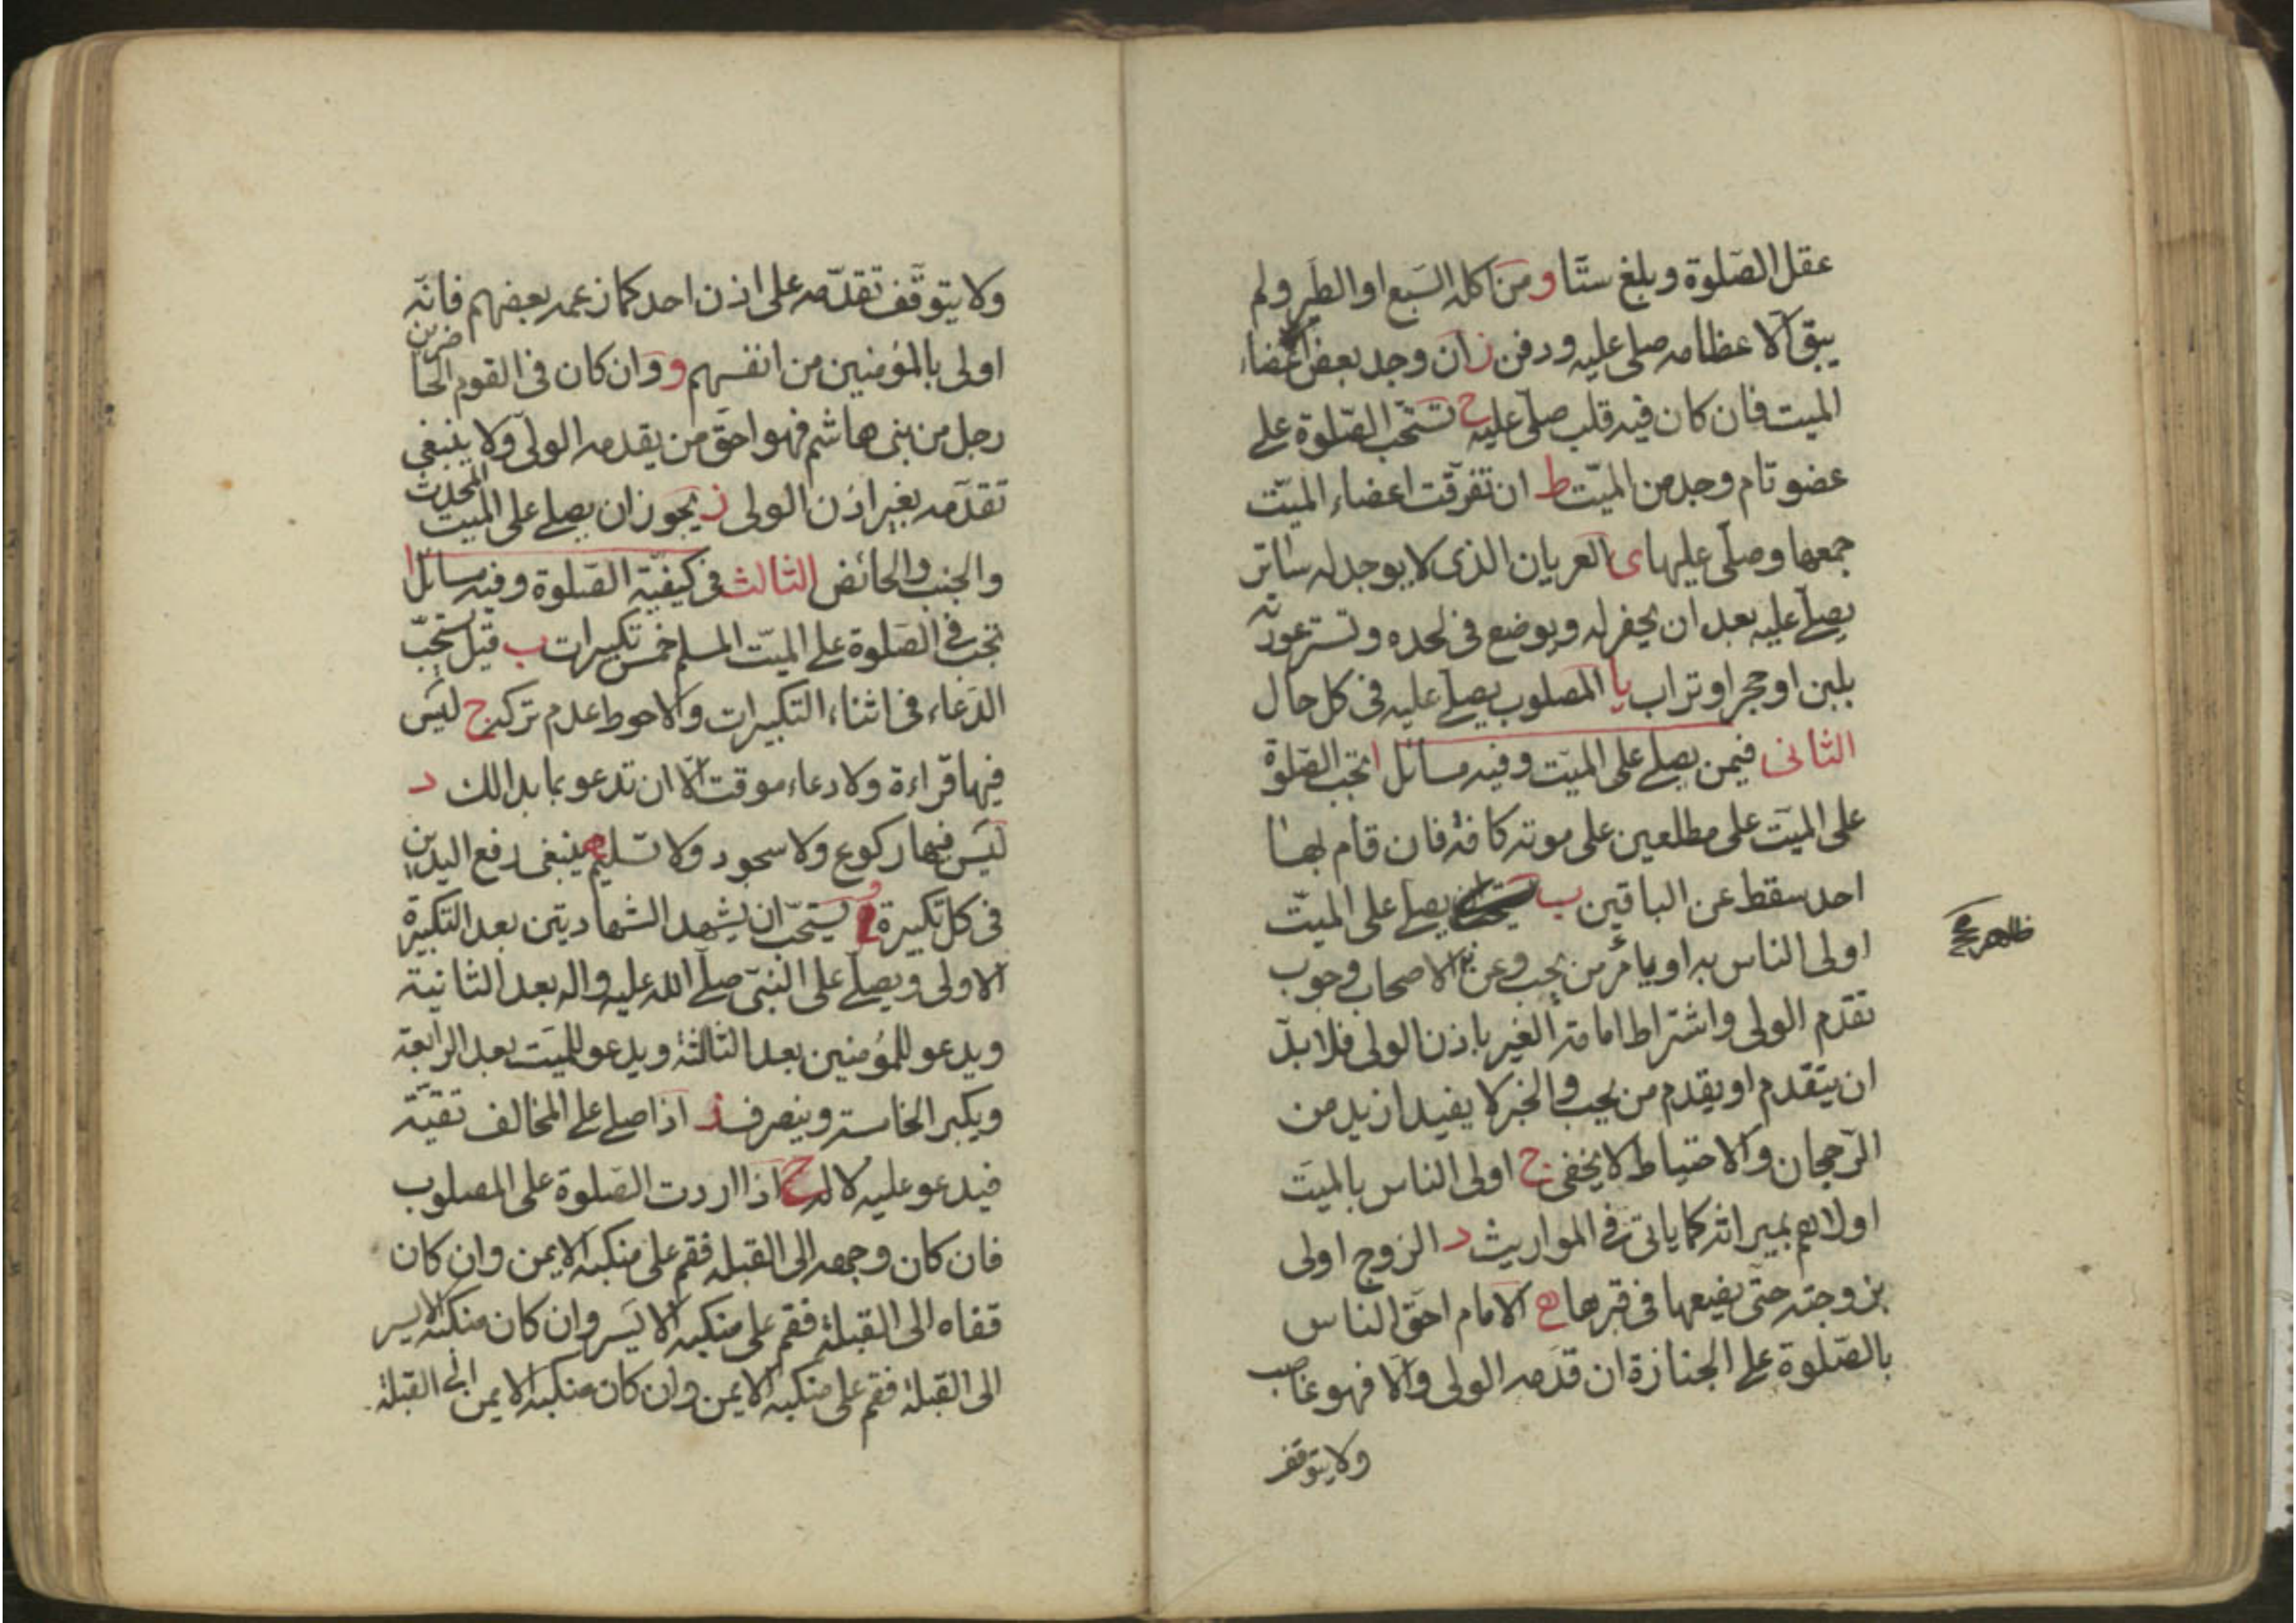 عقل الصلوة وبلغ ستّا و من اكله السبع او الطير ولم
يبق الا عظامه صلى عليه ودفن ز ان وجد بعض اعضاء
الميت فان كان فيه قلب صلّى عليه ح تستحب الصّلوة على
عضو تام وجد من الميّت ط ان تفرّقت اعضاء الميّت
جمعها وصلّى عليها ى العريان الذى لا يوجد له ساتر
يصلّى عليه بعد ان يحفر له ويوضع فى لحده وتستر عورته
بلبن او حجر او تراب يا المصلوب يصلّى عليه فى كل حال
الثانى فيمن يصلى على الميّت وفيه مسائل ا تجب الصّلوة
على الميّت على مطلعين على موته كافة فان قام بها
احد سقط عن الباقين ب يصلى على الميّت
اولى الناس به او يامر من يحب وعن الاصحاب وجوب
تقدّم الولى واشتراط امامة الغير باذن الولى فلا بدّ
ان يتقدم او يقدم من يحب والخبر لا يفيد ازيد من
الرّجحان والاحتياط لا يخفى ج اولى الناس بالميّت
اولاهم بميراثه كما ياتى فى المواريث د الزوج اولى
بزوجته حتّى يضعها فى قبرها ه الامام احقّ الناس
بالصّلوة على الجنازة ان قدّمه الولى والّا فهو غاصب
ولا يتوقف
ولا يتوقّف تقدّمه على اذن احد كما زعمه بعضهم فانّه
اولى بالمؤمنين من انفسهم و وان كان فى القوم الحاضرين
رجل من بنى هاشم فهو احقّ من يقدمه الولّى ولا ينبغى
تقدّمه بغير اذن الولى ز يجوز ان يصلى على الميت المحدث
والجنب والحائض الثالث فى كيفيّة الصّلوة وفيه مسائل ا
تجب فى الصّلوة على الميّت المسلم خمس تكبيرات ب قيل يستحبّ
الدّعاء فى اثناء التكبيرات والاحوط عدم تركه ج ليس
فيها قراءة ولا دعاء موقت الّا ان تدعو بما بدا لك د
ليس فيها ركوع ولا سجود ولا تسليم ه ينبغى رفع اليدين
فى كل تكبيرة و يستحبّ ان يشهد الشهادتين بعد التكبيرة
الاولى ويصلّى على النبىّ صلّى الله عليه واله بعد الثانية
ويدعو للمؤمنين بعد الثالثة ويدعو للميّت بعد الرابعة
ويكبر الخامسة وينصرف ز اذا صلى على المخالف تقيّة
فيدعو عليه لا له ح اذا اردت الصّلوة على المصلوب
فان كان وجهه الى القبلة فقم على منكبه الايمن وان كان
قفاه الى القبلة فقم على منكبه الايسر وان كان منكبه الايسر
الى القبلة فقم على منكبه الايمن وان كان منكبه الايمن الى القبلة